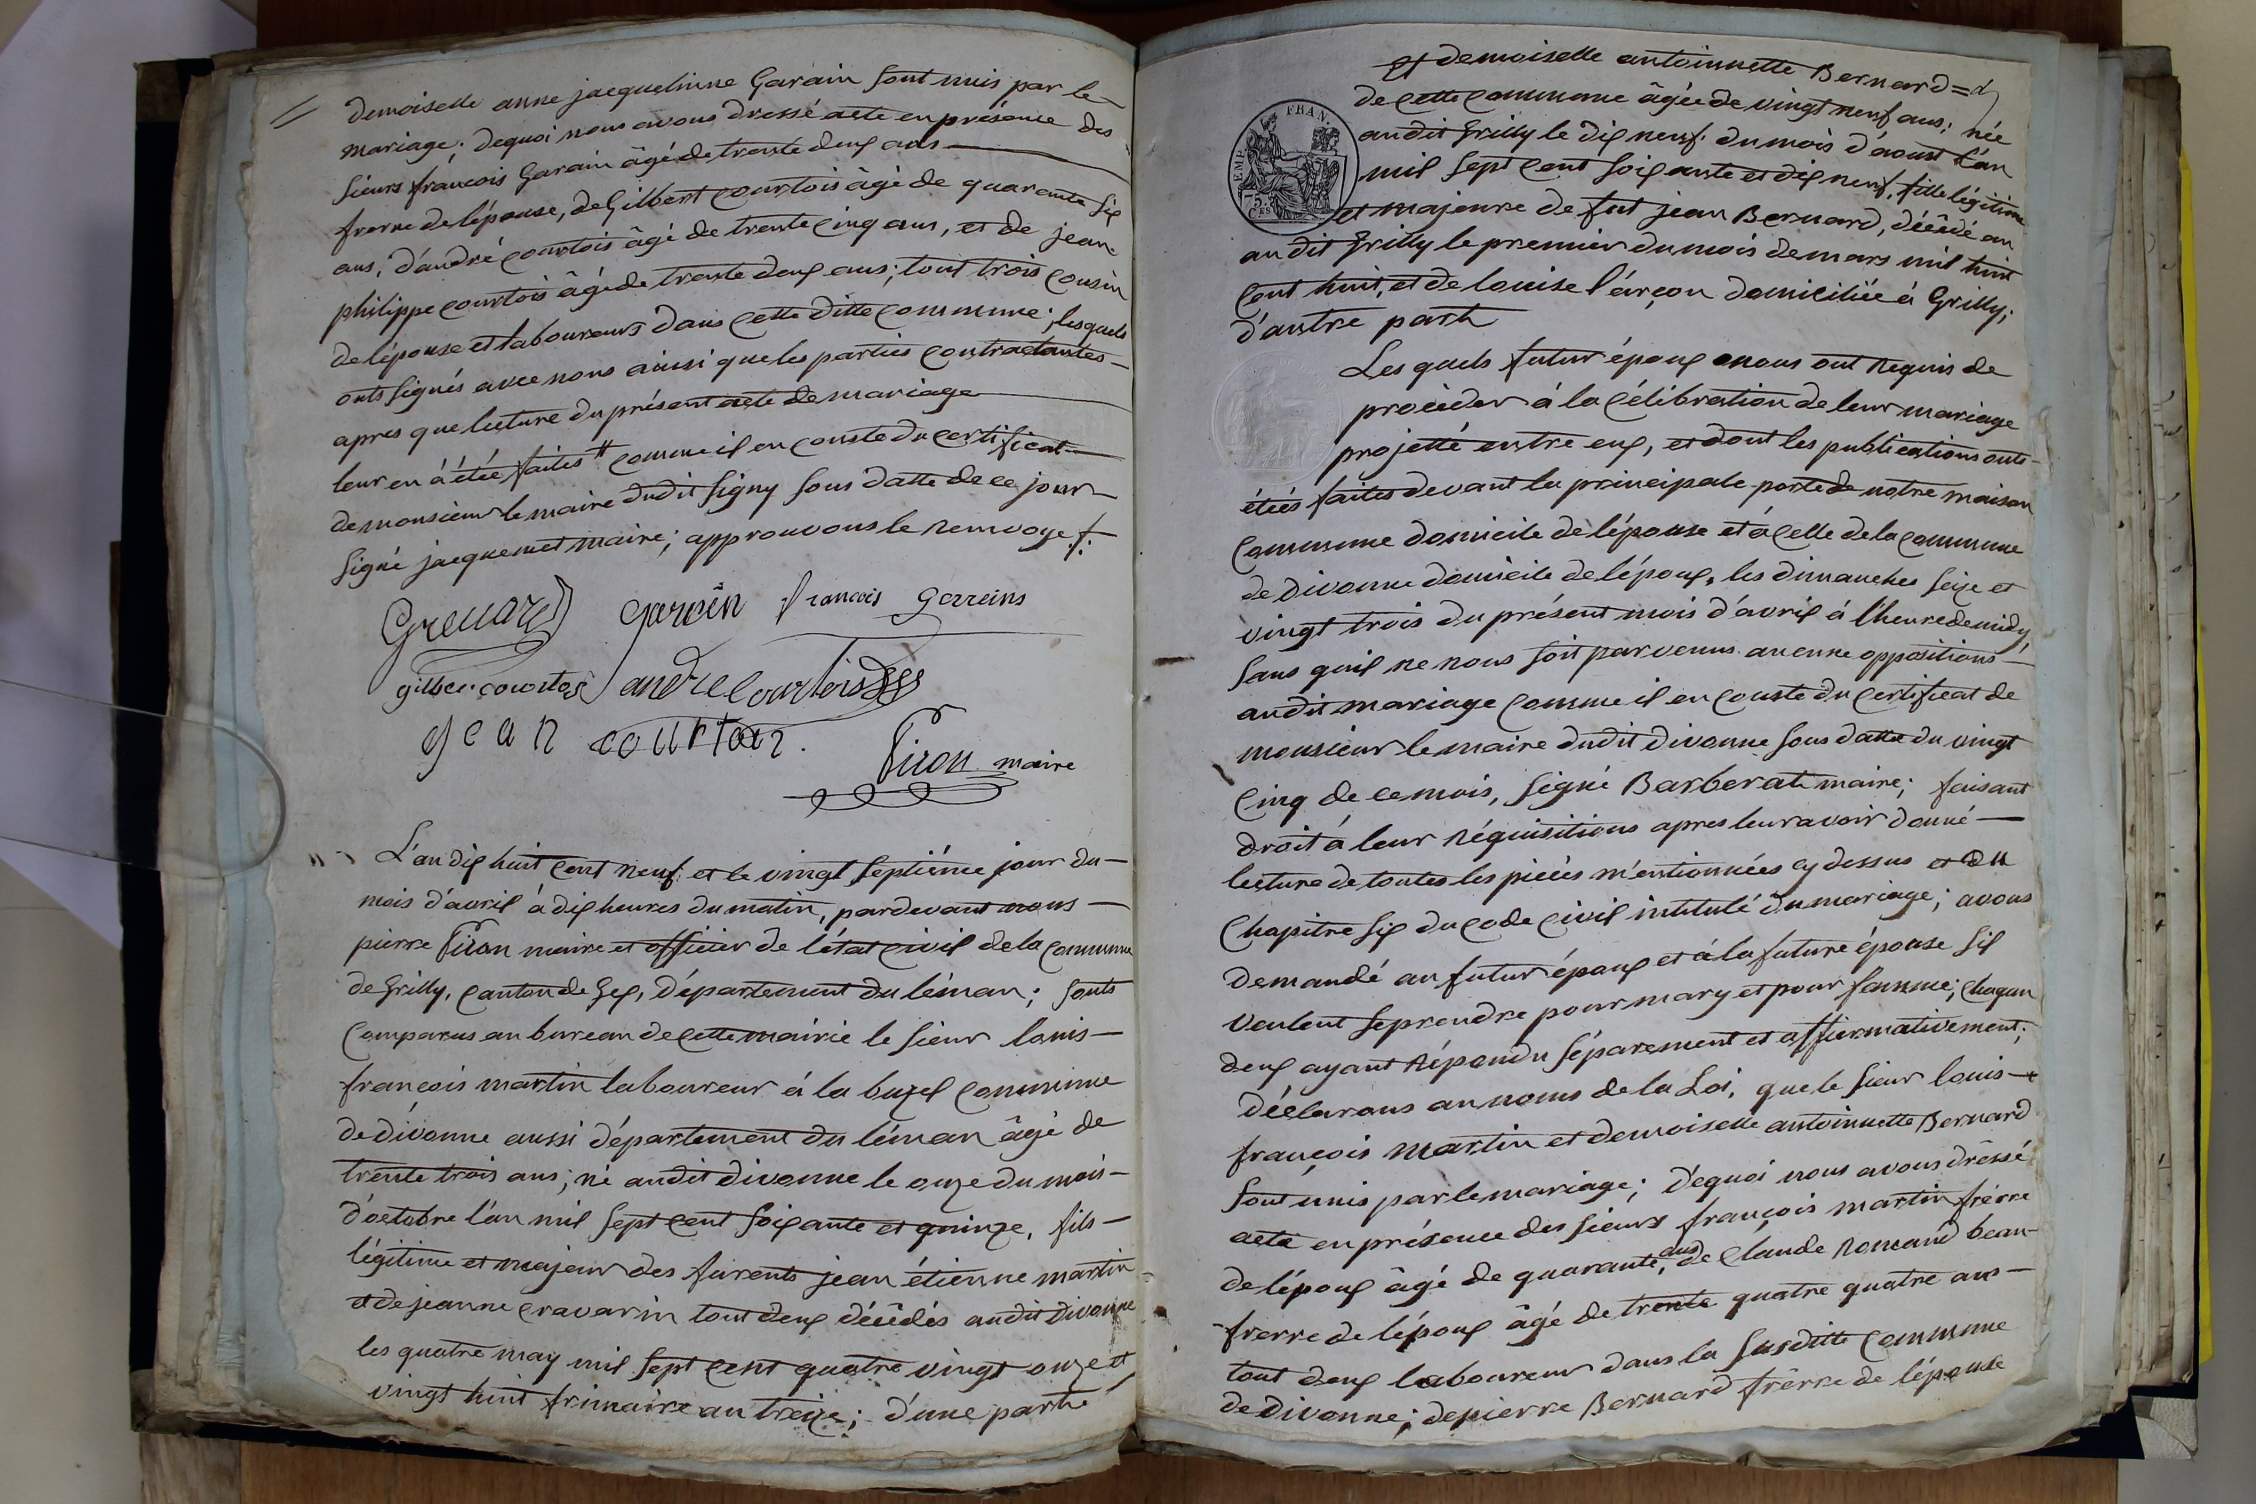 demoiselle anne jacquelinne Garain sont unis par le
mariage; dequoi nous avons dressé acte en présence des
sieurs francois Garain âgé de trente deux ans
frerre de lépouse, de Gilbert courtois âgé de quarante six
ans, d'andré courtois âgé de trente cinq ans, et de jean
philippe courtois âgé de trente deux ans; tout trois cousin
de lépouse et laboureurs dans cette ditte commune; lesquels
onts signés avec nous ainsi que les parties contractantes
apres que lecture du présent acte de mariage
leur en à étée faites # comme il en conste du certificat
de monsieur le maire dudit signy sous datte de ce jour
signé jacquemet maire; approuvons le renvoye
Grenard garain francois garreins
gilber courtois andré Courtois
jean courtois
Piron maire
L'an dix huit cent neuf et le vingt septiéme jour du
mois d'avril à dix heures du matin, pardevant nous
pierre Piron maire et officier de létat civil de la commune
de Grilly, canton de Gex, département du léman; sonts
comparus au bureau de cette mairie le sieur louis
françois martin laboureur à la buzel commune
de divonne aussi département du léman âgé de
trente trois ans; né audit divonne le onze du mois
d'octobre l'an mil sept cent soixante et quinze, fils
légitime et majeur des furents jean étienne martin
et de jeanne cravarin tout deux décédés audit divonne
les quatre may mil sept cent quatre vingt onze et
vingt huit frimaire an treize; d'une parte
et demoiselle antoinnette Bernard =
de cette commune âgée de vingt neuf ans; née
audit Grilly le dix neuf du mois d'aoust l'an
mil sept cent soixante et dix neuf, fille légitime
et majeure de fut jean Bernard, décédé au
audit Grilly le premier du mois de mars mil huit
cent huit, et de louise l'árçon domiciliée à Grilly;
d'autre part
EMP. FRAN.
75 CES
Les quels futur époux nous ont requis de
procéder à la célébration de leur mariage
projetté entre eux, et dont les publications onts
étées faites devant la principale porte de notre maison
commune domicile de lépouse et à celle de la commune
de divonne domicile de lépoux, les dimanches seize et
vingt trois du présent mois d'avril à l'heure de midy,
sans quil ne nous soit parvenus aucune oppositions
audit mariage comme il en conste du certificat de
monsieur le maire dudit divonne sous datte du vingt
cinq de ce mois, signé Barberat maire; faisant
droit à leur réquisitions apres leur avoir donné
lecture de toutes les pieces mentionnées cy dessus et du
chapitre six du code civil intitulé du mariage; avons
demandé au futur époux et à la future épouse sil
veulent se prendre pour mary et pour femme; chaqun
deux ayant répondu séparement et affirmativement;
déclarons au noms de la Loi, que le sieur louis
françois martin et demoiselle antoinnette Bernard
sont unis par le mariage; déquoi nous avons dréssé
acte en présence des sieurs françois martin frérre
de lépoux âgé de quarante, ans de Claude Romand beau
frerre de lépoux âgé de trente quatre quatre ans
tout deux laboureur dans la susditte commune
de divonne; de pierre Bernard frérre de lépouse